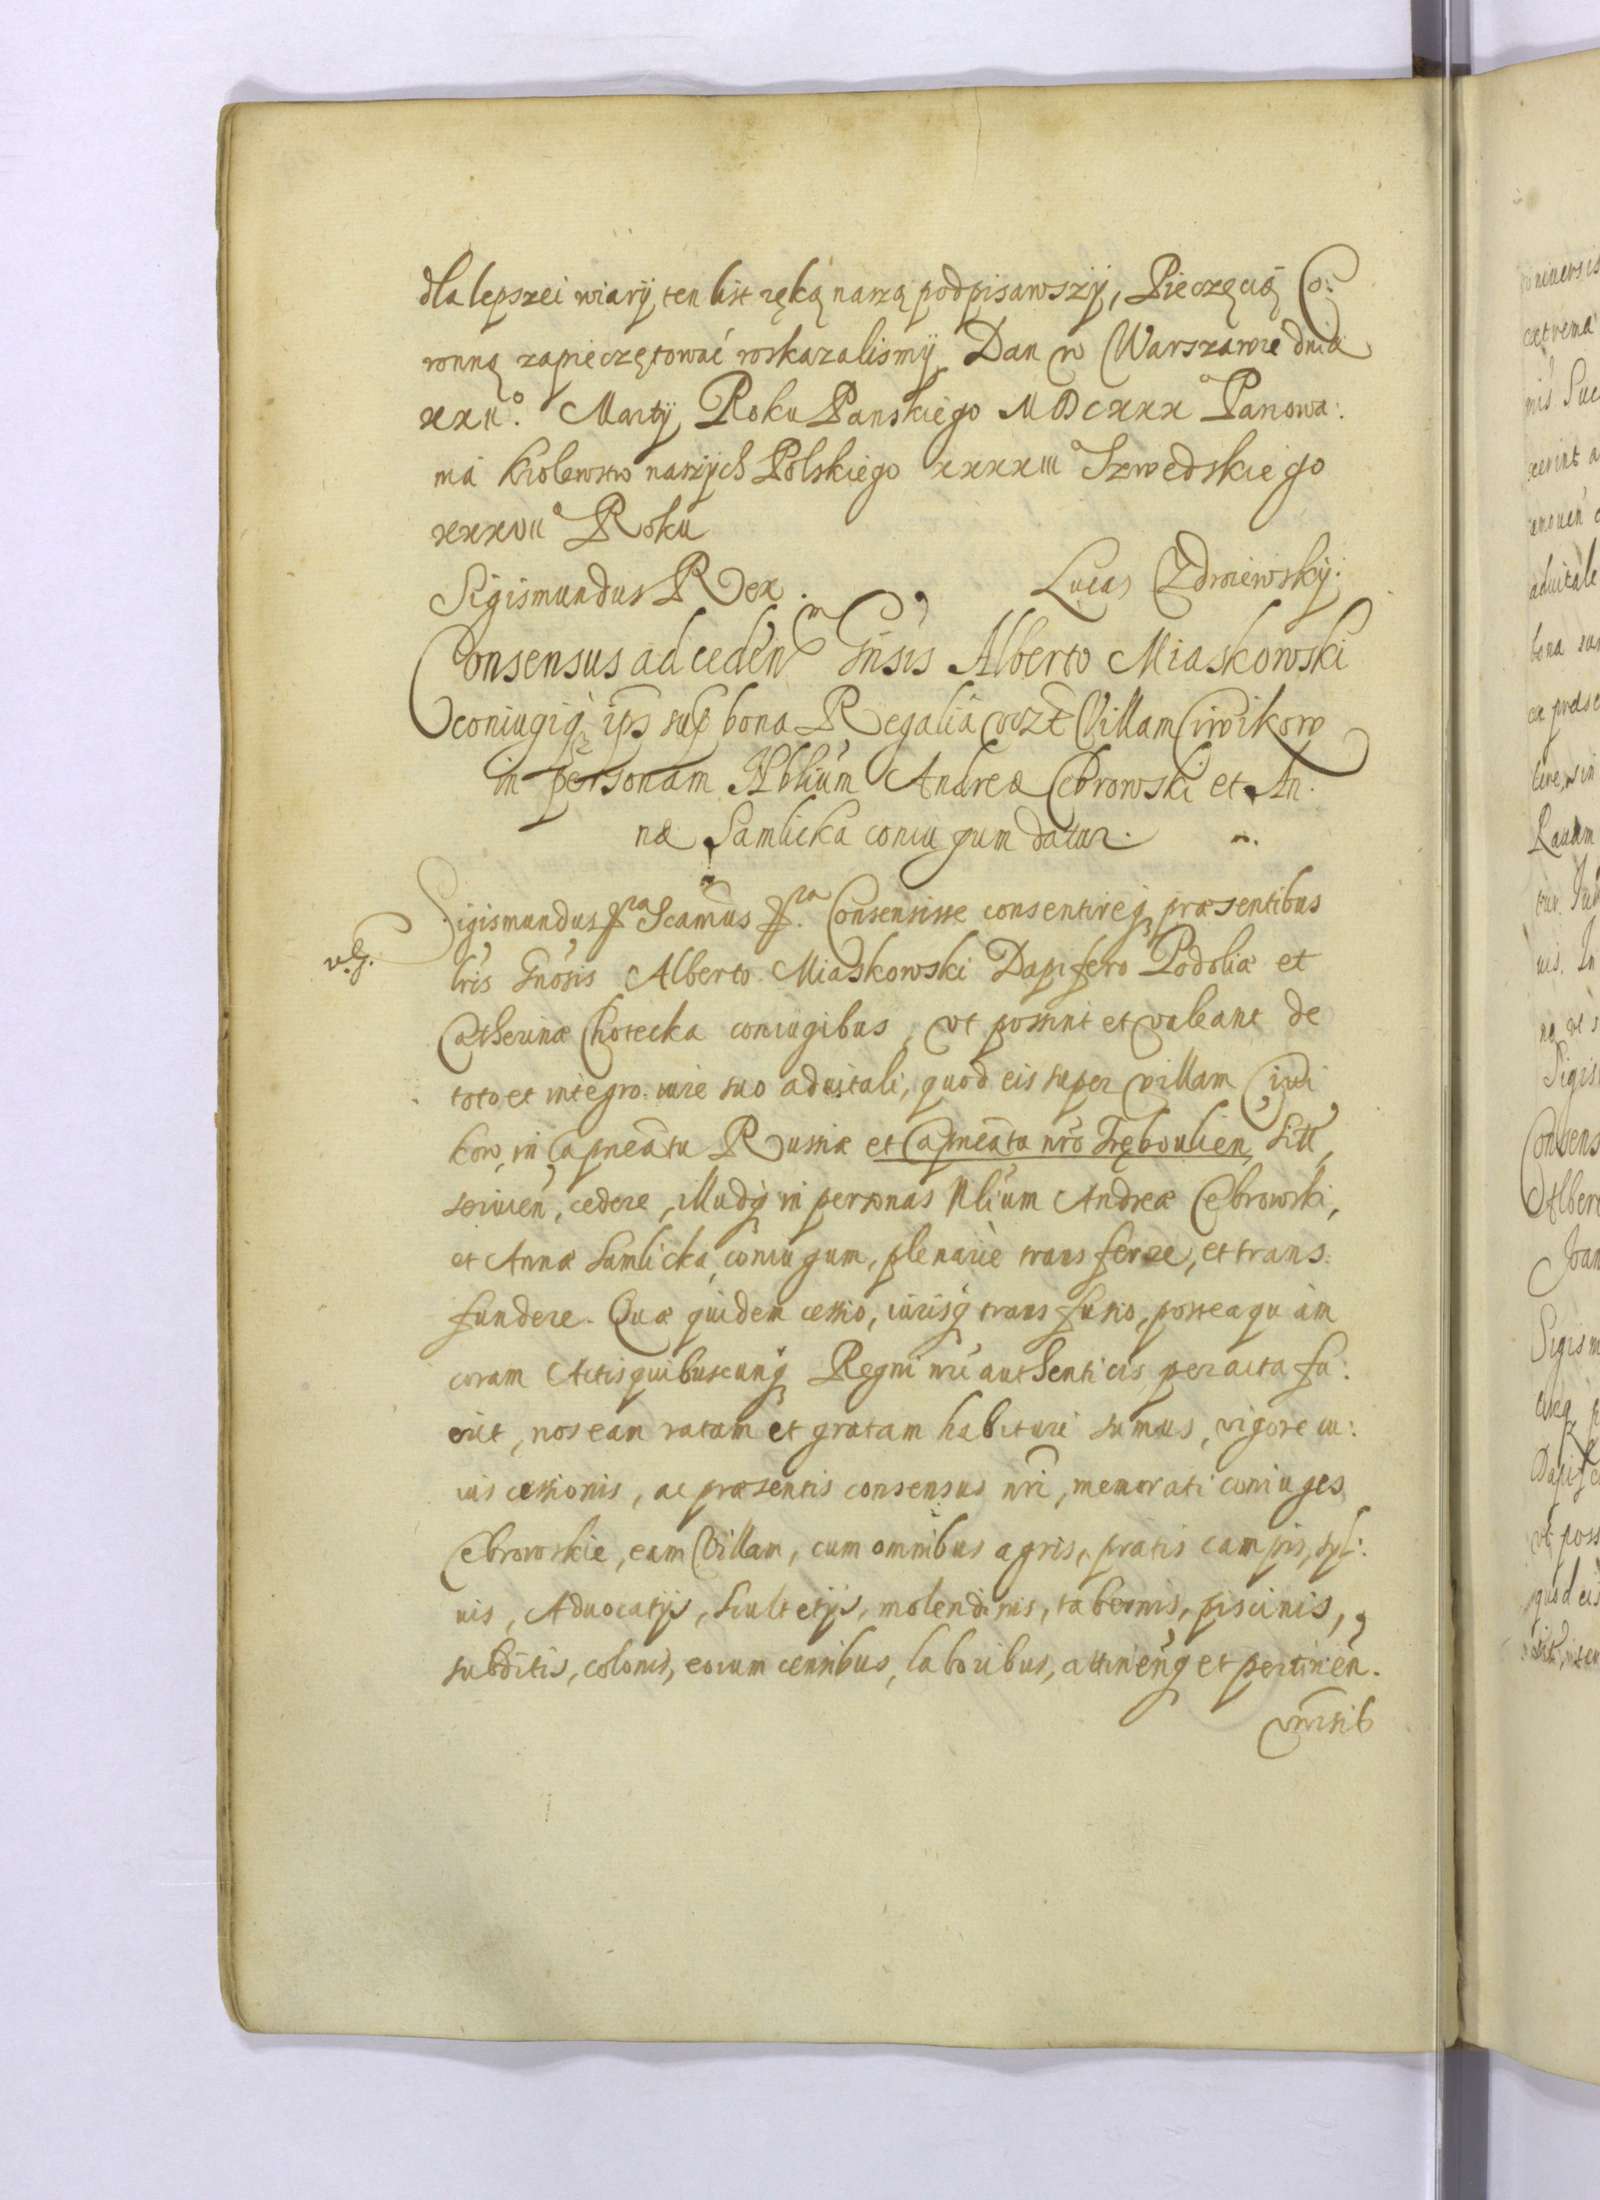 dla lepszei wiary, ten list ręką naszą podpisawszy, Pieczęcią Co:
ronną zapieczętować roskazalismy. Dan w Warszawie dnia
xxii°. Martij Roku Panskiego MDCXXX Panowa:
nia Krolewstw naszych Polskiego xxxxiii Szwedskiego
xxxvii Roku
Sigismundus Rex. Lucas Zdrwiewsky.
Consensus ad ceden Gnsis Alberto Miaskowski
coniugiq ips sup bona Regalia vizt Villam Ciwikow
in personam Nblium Andreæ Cebrowski et An:
næ Samlicka coniugum datur.
Sigismundus &ra Scamus &ra. Consensisse consentireq præsentibus
v.g.
lris Gnosis Alberto Miaskowski Dapifero Podoliæ et
Catherinæ Chotecka coniugibus, vt possint et valeant de
toto et integro iure suo aduitali, quod eis super villam Ciwi
kow, in Capneatu Russiæ et Capneatu nro Trębowlien, sitt,
seruien, cedere, illudq in personas Nlium Andreæ Cebrowski,
et Annæ Samlicka, coniugum, plenariè transferre, et trans:
fundere. Quæ quidem cessio, iurisq transfusio, posteaquàm
coram Actis quibuscunq Regni nri authenticis peracta fu:
erit, nos eam ratam et gratam habituri sumus, vigore iu:
ius cessionis, ac præsentis consensus nri, memorati coniuges
Cebrowskie, eam Villam, cum omnibus agris, pratis campis, syl:
uis, Aduocatijs, scultetijs, molendinis, tabernis, piscinis,
subditis, colonis, eorum censibus, laboribus, attinenq et pertinen.
vnirsib